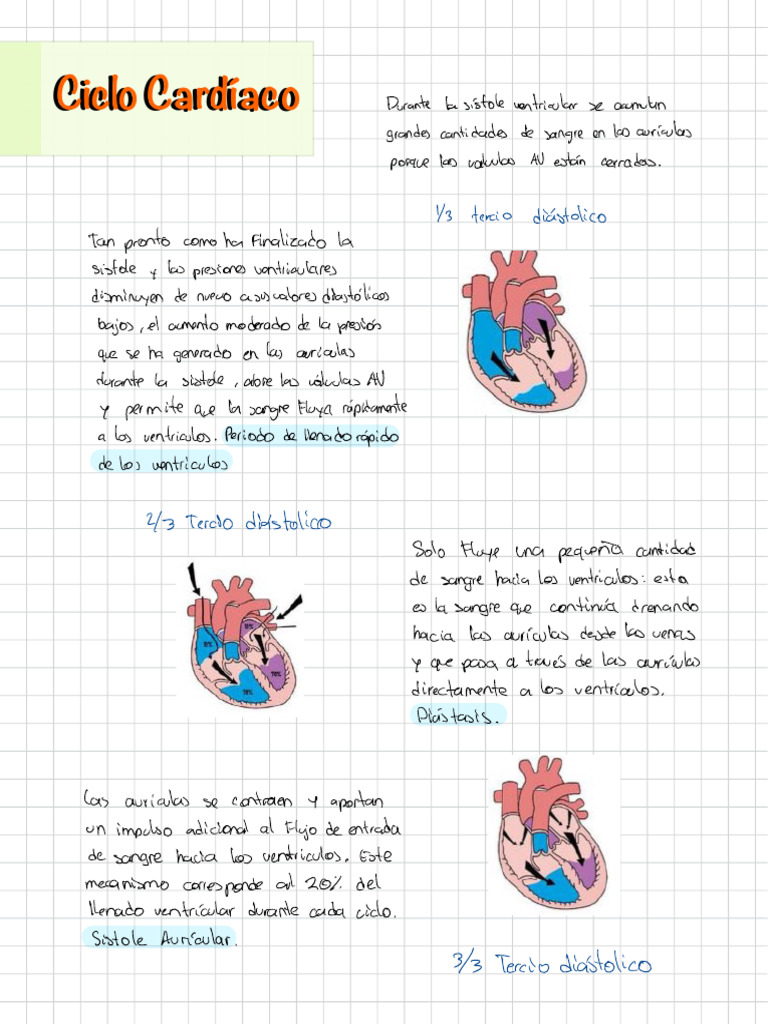 Ciclo Cardíaco
Durante la sístole ventricular se acumulan
grandes cantidades de sangre en las aurículas
porque las valvulas AV están cerradas.
1/3 tercio diástolico
Tan pronto como ha Finalizado la
sistole y las presiones ventriculares
disminuyen de nuevo a sus valores diastólicos
bajos, el aumento moderado de la presión
que se ha generado en las aurículas
durante la sistole, abre las válvulas AV
y permite que la sangre Fluya rápidamente
a los ventriculos. Periodo de llenado rápido
de los ventriculos
2/3 Tercio diástolico
Solo Fluye una pequeña cantidad
de sangre hacia los ventriculos: esta
es la sangre que continúa drenando
hacia las aurículas desde las venas
y que pasa a través de las aurículas
directamente a los ventrículos.
Diástasis.
70%
70%
Las aurículas se contraen y aportan
un impulso adicional al Flujo de entrada
de sangre hacia los ventriculos. Este
mecanismo corresponde al 20% del
llenado ventrícular durante cada ciclo.
Sistole Aurícular.
3/3 Tercio diástolico